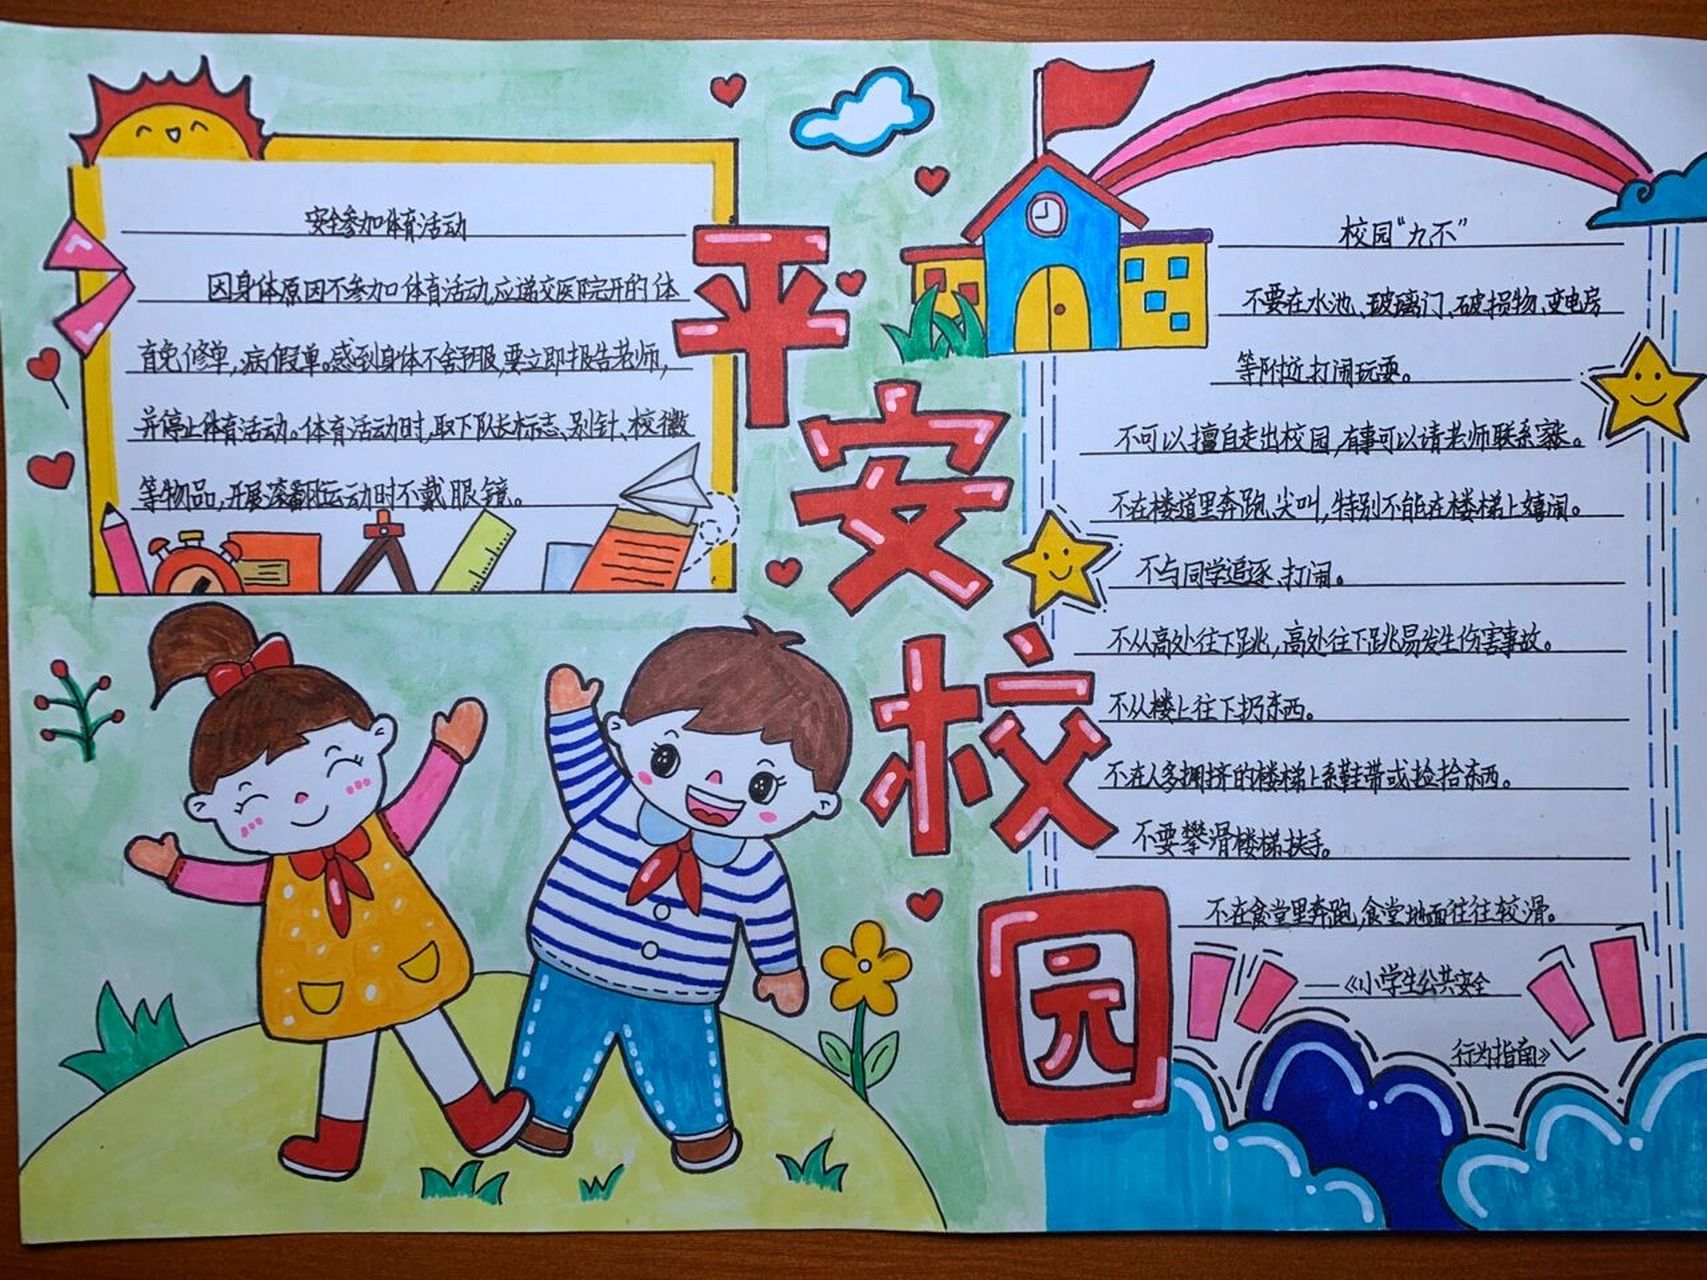 安全参加体育活动
因身体原因不参加体育活动,应递交医院开的体
育免修单,病假单。感到身体不舒服,要立即报告老师,
并停止体育活动。体育活动时,取下队长标志、别针、校徽
等物品,开展滚翻运动时不戴眼镜。
平安校园
校园“九不”
不要在水池、玻璃门、破损物、变电房
等附近打闹玩耍。
不可以擅自走出校园,有事可以请老师联系家长。
不在楼道里奔跑、尖叫,特别不能在楼梯上嬉闹。
不与同学追逐、打闹。
不从高处往下跳,高处往下跳易发生伤害事故。
不从楼上往下扔东西。
不在人多拥挤的楼梯上系鞋带或捡拾东西。
不要攀滑楼梯扶手。
不在食堂里奔跑,食堂地面往往较滑。
——《小学生公共安全
行为指南》